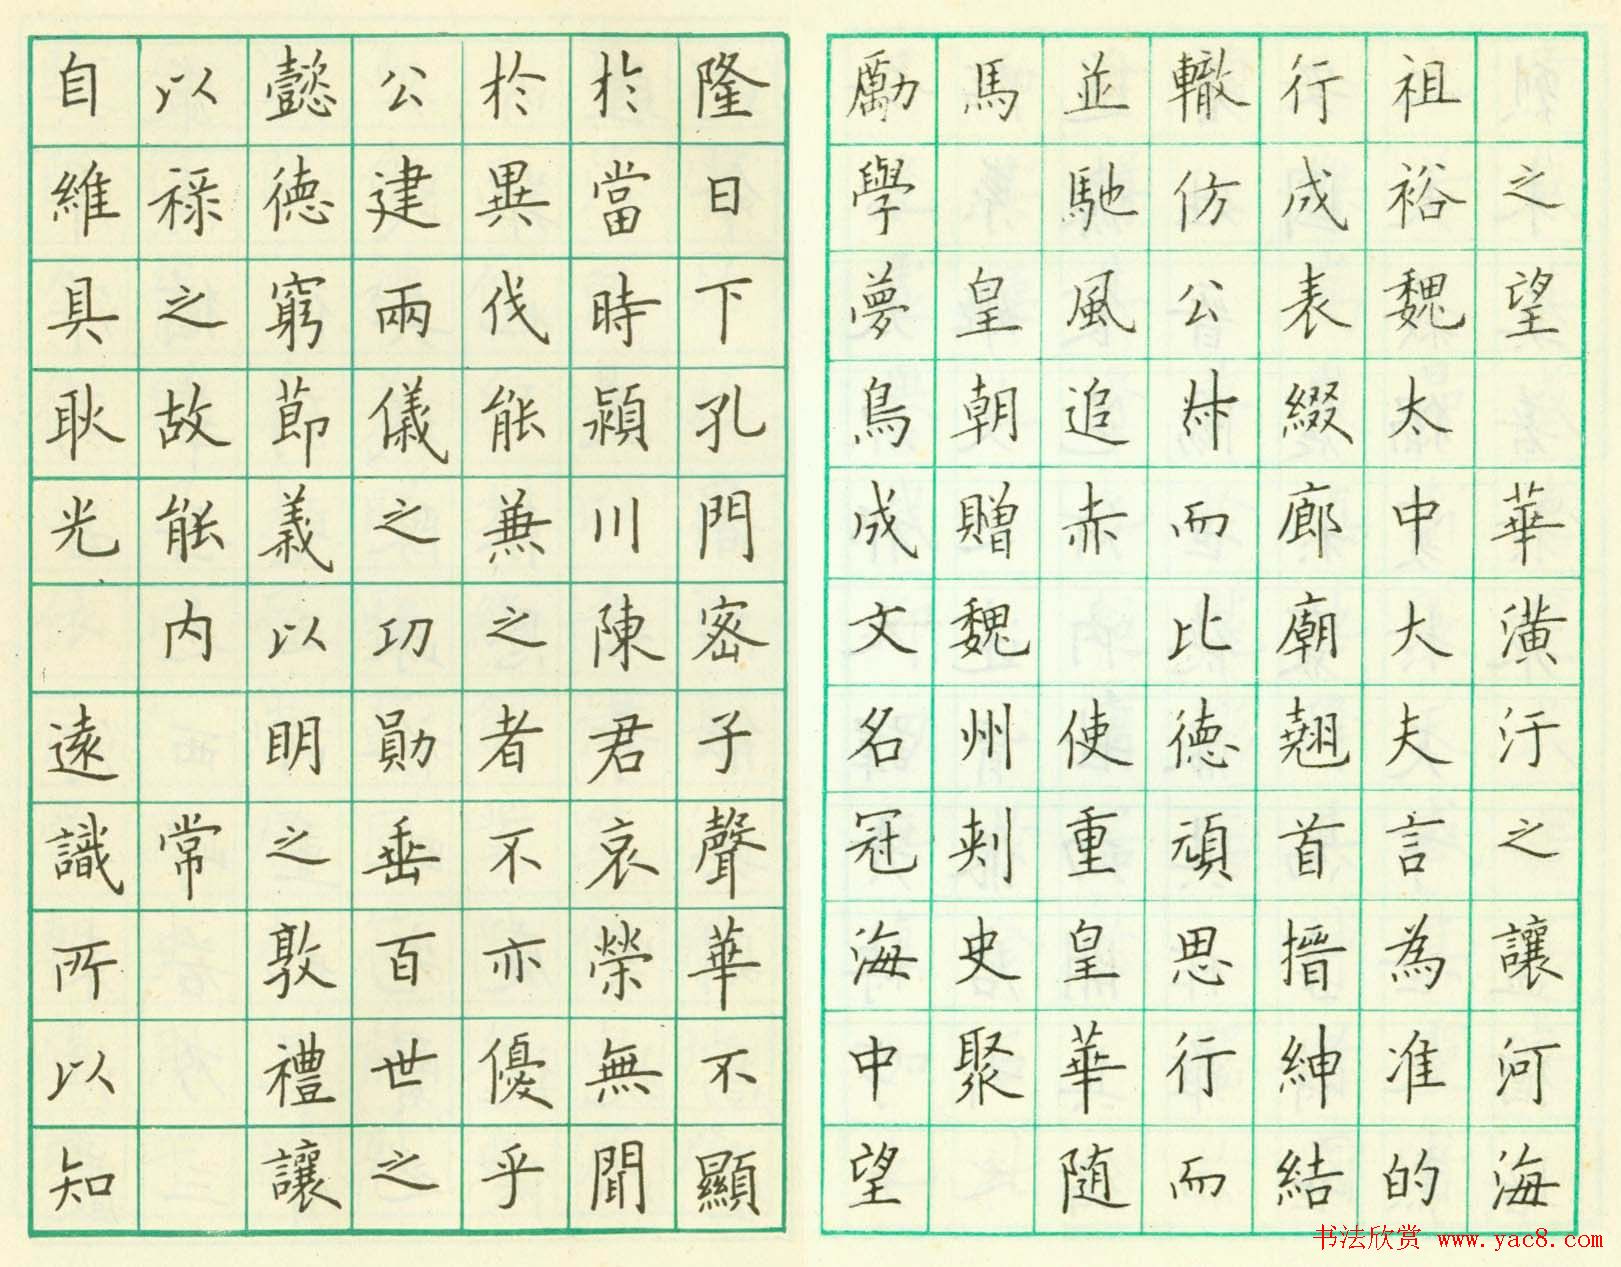 之望 華潢汙之讓河海
祖裕魏太中大夫言為准的
行成表綴廊廟翹首搢紳結
轍仿公叔而比德頑思行而
並馳風追赤 使重皇華随
馬皇朝贈魏州刺史聚
勵學夢鳥成文名冠海中望
隆日下孔門密子聲華不顯
於當時潁川陳君哀榮無聞
於異伐能兼之者不亦優乎
公建兩儀之功勛垂百世之
懿德窮節義以明之敦禮讓
以祿之故能内 常
自維具耿光 遠識所以知
书法欣赏 www.yac8.com